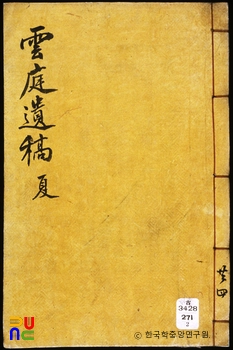 雲庭遺稿 夏
共四
古
3428
271
2
ⓒ한국학중앙연구원